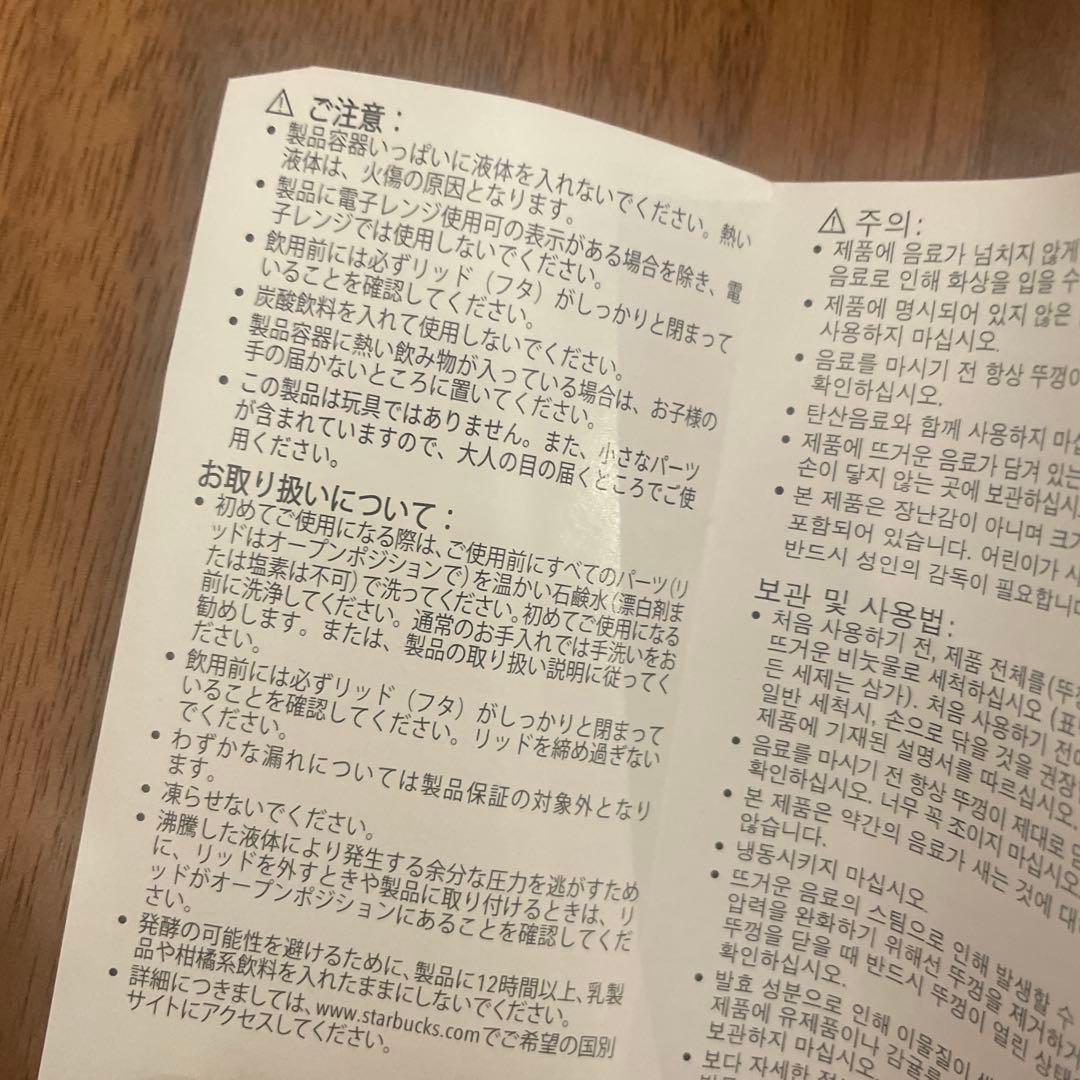 ⚠ ご注意：
• 製品容器いっぱいに液体を入れないでください。熱い
液体は、火傷の原因となります。
• 製品に電子レンジ使用可の表示がある場合を除き、電
子レンジでは使用しないでください。
• 飲用前には必ずリッド（フタ）がしっかりと閉まって
いることを確認してください。
• 炭酸飲料を入れて使用しないでください。
• 製品容器に熱い飲み物が入っている場合は、お子様の
手の届かないところに置いてください。
• この製品は玩具ではありません。また、小さなパーツ
が含まれていますので、大人の目の届くところでご使
用ください。
お取り扱いについて：
• 初めてご使用になる際は、ご使用前にすべてのパーツ(リ
ッドはオープンポジションで)を温かい石鹸水(漂白剤ま
たは塩素は不可)で洗ってください。初めてご使用になる
前に洗浄してください。通常のお手入れでは手洗いをお
勧めします。または、製品の取り扱い説明に従ってく
ださい。
• 飲用前には必ずリッド（フタ）がしっかりと閉まって
いることを確認してください。リッドを締め過ぎない
でください。
• わずかな漏れについては製品保証の対象外となり
ます。
• 凍らせないでください。
• 沸騰した液体により発生する余分な圧力を逃がすため
に、リッドを外すときや製品に取り付けるときは、リ
ッドがオープンポジションにあることを確認してくだ
さい。
• 発酵の可能性を避けるために、製品に12時間以上、乳製
品や柑橘系飲料を入れたままにしないでください。
• 詳細につきましては、www.starbucks.comでご希望の国別
サイトにアクセスしてください。
⚠ 주의:
• 제품에 음료가 넘치지 않게
음료로 인해 화상을 입을 수
• 제품에 명시되어 있지 않은
사용하지 마십시오.
• 음료를 마시기 전 항상 뚜껑이
확인하십시오.
• 탄산음료와 함께 사용하지 마십
• 제품에 뜨거운 음료가 담겨 있는
손이 닿지 않는 곳에 보관하십시
• 본 제품은 장난감이 아니며 크기
포함되어 있습니다. 어린이가 사
반드시 성인의 감독이 필요합니다
보관 및 사용법:
• 처음 사용하기 전, 제품 전체를(뚜껑
뜨거운 비눗물로 세척하십시오 (표
든 세제는 삼가). 처음 사용하기 전에
일반 세척시, 손으로 닦을 것을 권장
제품에 기재된 설명서를 따르십시오.
• 음료를 마시기 전 항상 뚜껑이 제대로 닫
확인하십시오. 너무 꼭 조이지 마십시오
• 본 제품은 약간의 음료가 새는 것에 대
않습니다.
• 냉동시키지 마십시오.
• 뜨거운 음료의 스팀으로 인해 발생할 수
압력을 완화하기 위해선 뚜껑을 제거하거
뚜껑을 닫을 때 반드시 뚜껑이 열린 상태
확인하십시오.
• 발효 성분으로 인해 이물질이
제품에 유제품이나 감귤류
보관하지 마십시오.
• 보다 자세한